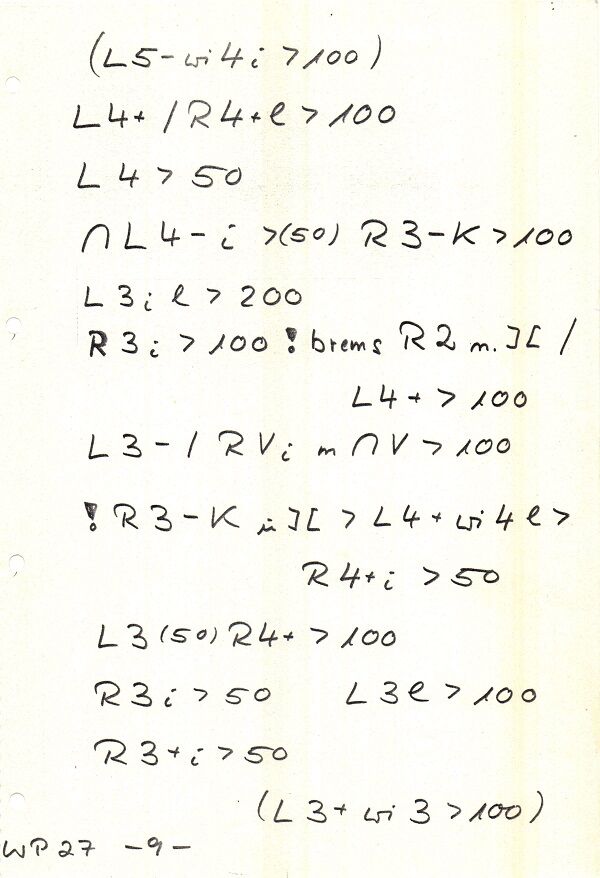 (L5-wi4i>100)
L4+/R4+l>100
L4>50
∩L4-i >(50) R3-K>100
L3il>200
R3i>100!brems R2 m.][/
L4+>100
L3-/RVi m∩V>100
!R3-K in][>L4+wi4l>
R4+i>50
L3(50)R4+>100
R3i>50 L3l>100
R3+i>50
(L3+wi3>100)
WP27 -9-